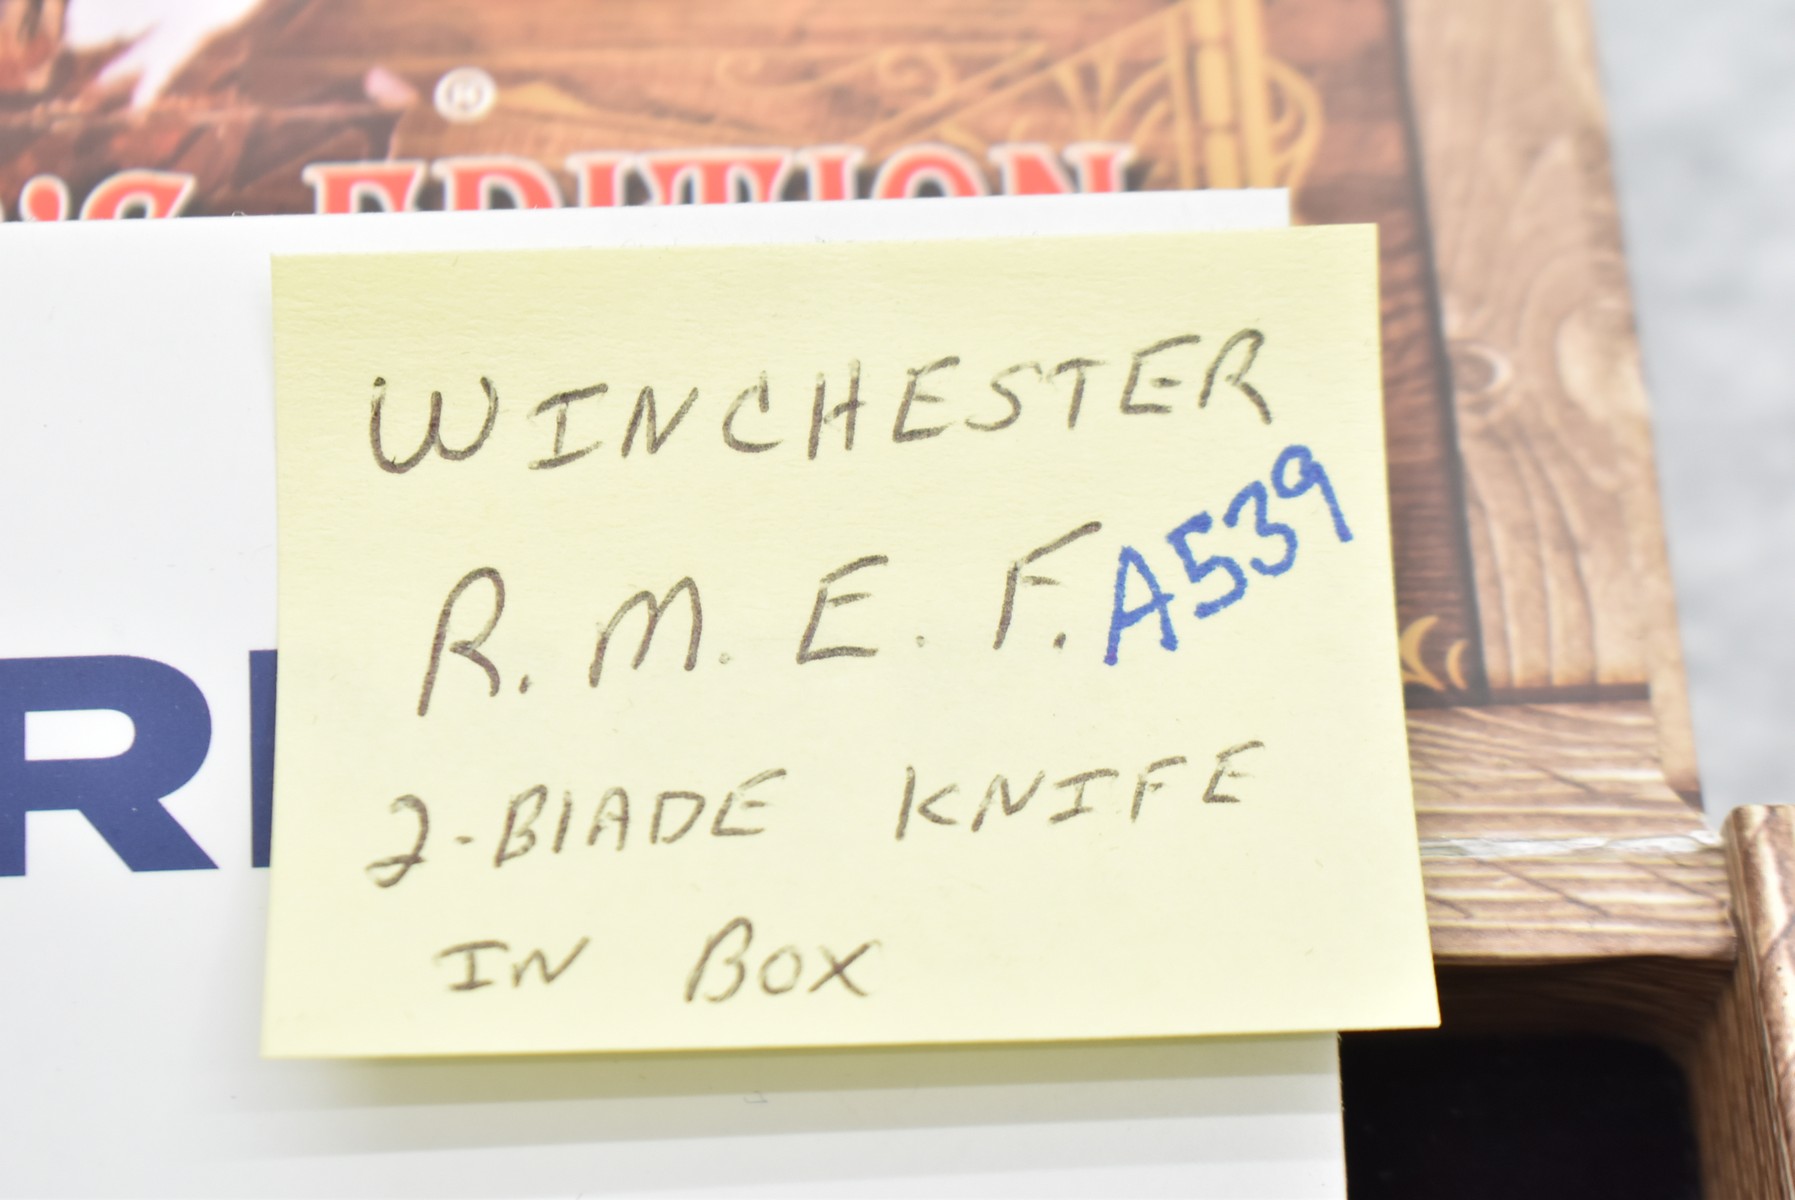 ®
EDITION
WINCHESTER
R.M.E.F. A539
2-BLADE KNIFE
IN BOX